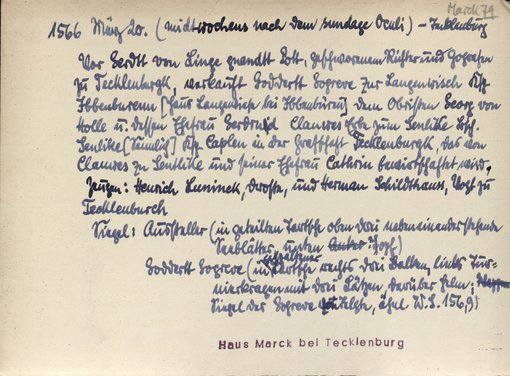 Marck 79
1566 März 20. (midtwochens nach dem sundage Oculi) - Tecklenburg
Vor Gerdt von Linge genandt Bott, geschworenem Richter und Gografen
zu Tecklenburgk, verkauft Goddertt Gogreve zur Langenwisch Ksp.
Ibbenburenn [Haus Langewiese bei Ibbenbüren] dem Obristen Georg von
Holle u. dessen Ehefrau Gerdrud Clawes Erbe zum Sentlike
Sentlike Ksp. Caplen in der Grafschaft Tecklenburgk, das von
Clawes zu Sentlike und seiner Ehefrau Cathrin bewirtschaftet wird.
Zeugen: Henrich Luninck, Droste, und Herman Schildthaus, Vogt zu
Tecklenburch
Siegel: Aussteller (in geteilten Tartsche oben drei nebeneinanderstehende
Seeblätter, unten Zopf)
Goddertt Gogreve (in gespaltener Tartsche rechts drei Balken, links Tur-
nierkragen mit drei Lätzen darüber Helm;
Siegel der Gogreve W.S. 156,9)
Haus Marck bei Tecklenburg